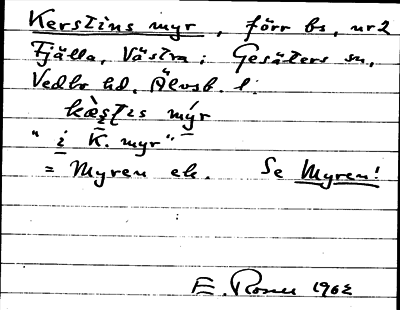 Kerstins myr, förr bs, nr 2
Fjälla, Västra; Gesäters sn,
Vedbo hd, Älvsb. l.
kæ̀ʂtis mýr
"i K. myr"
= Myren ek. Se Myren!
E. Rosell 1962